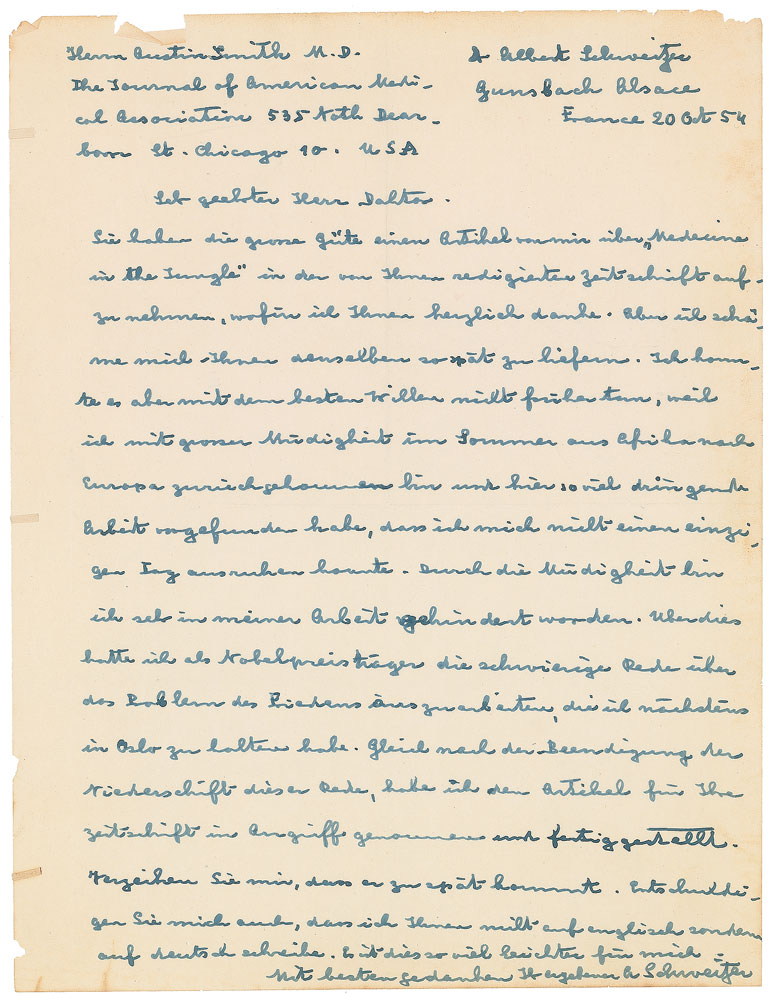 Herrn Austin Smith M.D.
The Journal of American Medi-
cal Association 535 Noth Dear-
born St. Chicago 10. USA
Dr Albert Schweitzer
Gunsbach Alsace
France 20 Oct 54
Sehr geehrter Herr Doktor.
Sie haben die grosse Güte einen Artikel von mir über „Medecine
in the Jungle" in der von Ihnen redigierten Zeitschrift auf-
zu nehmen, wofür ich Ihnen herzlich danke. Aber ich schä-
me mich Ihnen denselben so spät zu liefern. Ich konn-
te es aber mit dem besten Willen nicht früher tun, weil
ich mit grosser Müdigkeit im Sommer aus Afrika nach
Europa zurückgekommen bin und hier so viel dringende
Arbeit vorgefunden habe, dass ich mich nicht einen einzi-
gen Tag ausruhen konnte. Durch die Müdigkeit bin
ich sehr in meiner Arbeit gehindert worden. Uberdies
hatte ich als Nobelpreisträger die schwierige Rede über
das Problem des Friedens auszuarbeiten, die ich nächstens
in Oslo zu halten habe. Gleich nach der Beendigung der
Niederschrift dieser Rede, habe ich den Artikel für Ihre
Zeitschrift in Angriff genommen und fertig gestellt.
Verzeihen Sie mir, dass er zu spät kommt. Entschuldi-
gen Sie mich auch, dass ich Ihnen nicht auf englisch sondern
auf deutsch schreibe. Es ist dies so viel leichter für mich
Mit besten gedanken Ihr ergebener A Schweitzer